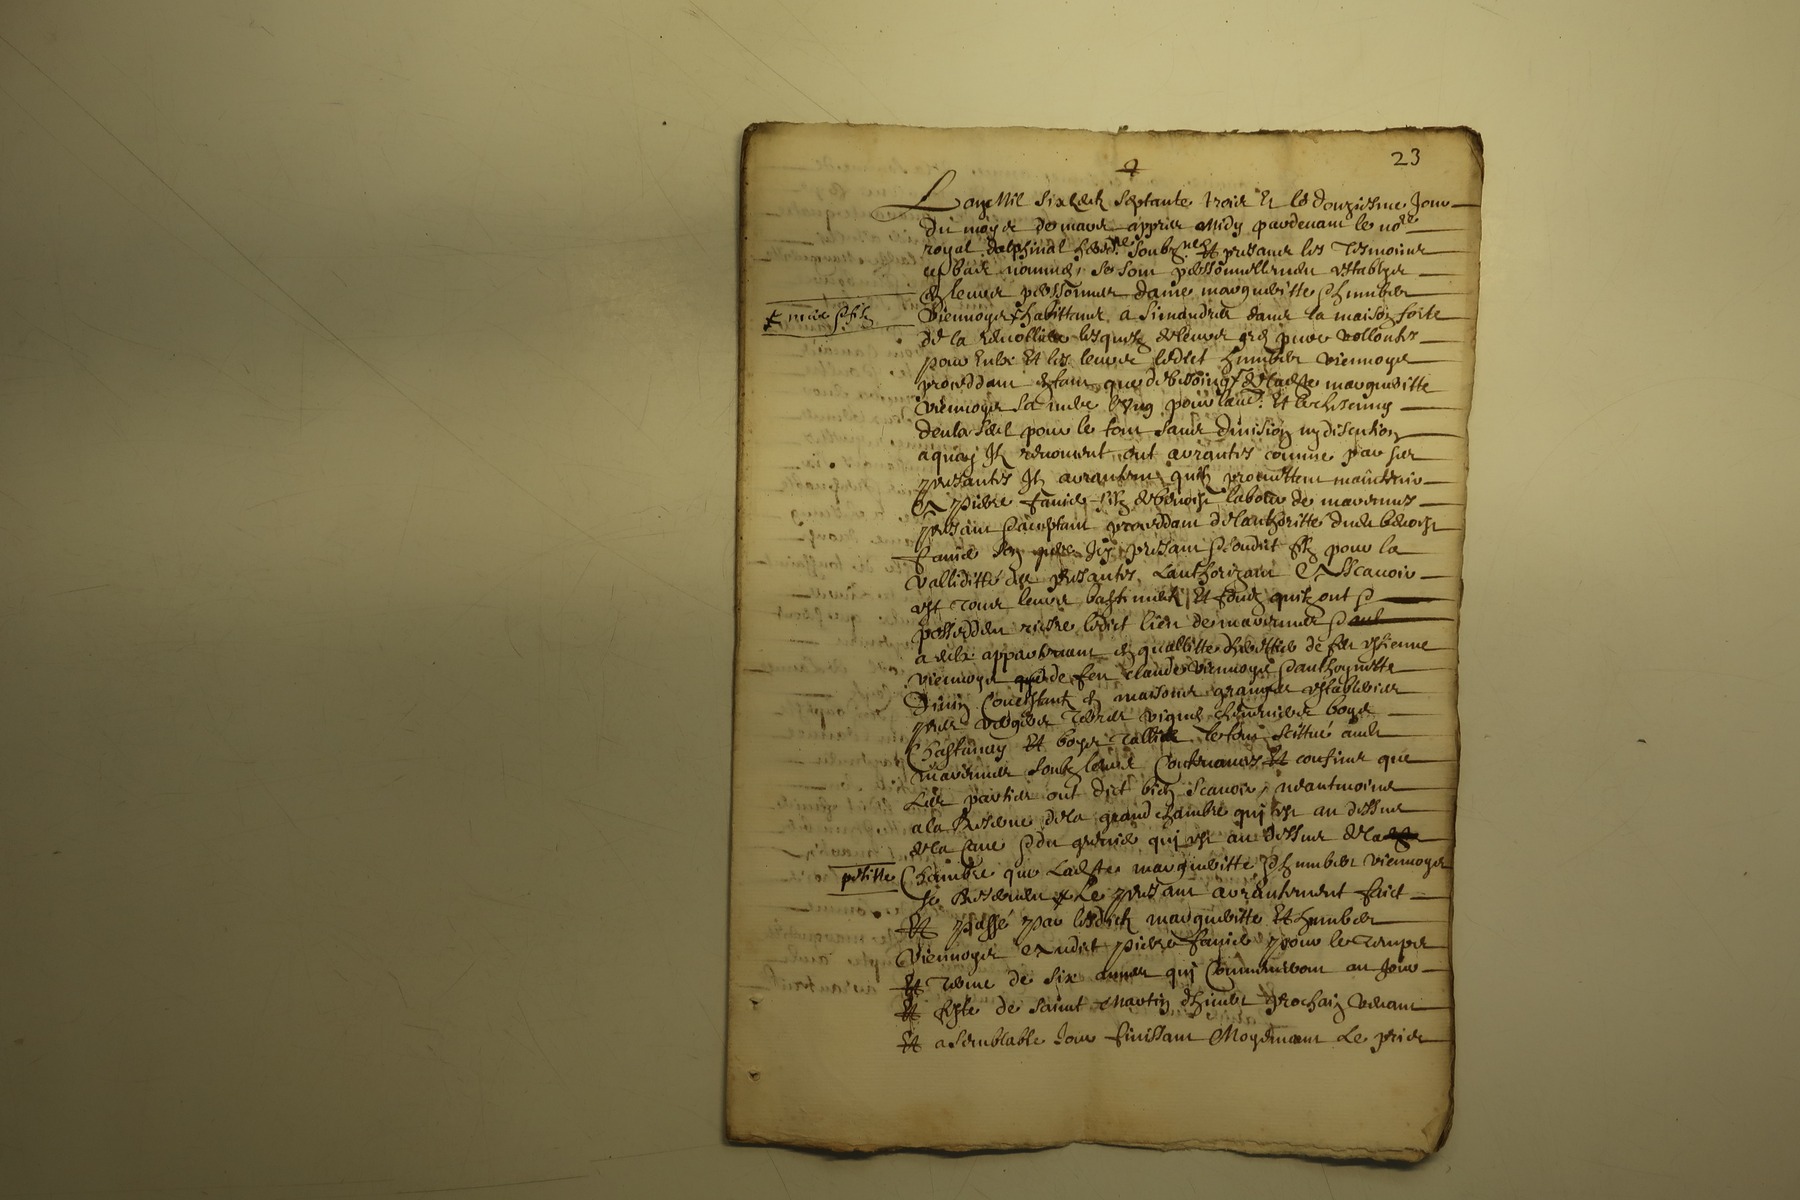 23
L an Mil six centz septante trois Et le douziesme Jour
du moys de mars appres midy pardevant le no.re
royal dalphinal heredit.re soubz.ne Et presans les tesmoins
cy bas nommés se sont personnellement establys
en leurs personnes dame margueritte & humber
Viennoys habittans a Simandres dans la maison forte
& mere & filz
de la lesquelz de leurs gré pure vollontés
pour Eulx Et les leurs ledict humber viennoys
procedant en tant que de besoing de ladite margueritte
viennoys sa mere l'ung pour l'aut. Et ung
deulx seul pour le tout sans division ny discution
a quoy Ilz renoncent ont arrantés comme par ses
presantes Ilz arrantent quilz promettent maintenir
A pierre fanid filz de benoist labour de marennes
presant & aceptant procedant de lauthoritte dudit benoist
fanid son pere Icy presant & sondict filz pour la
vallidité des presantes lauthorizant A Scavoir
est tous leurs bastiments Et fondz quilz ont &
possedent riesre ledict lieu de marennes &
a eulx appartenant en quallitte d'herittiers de feu estienne
viennoys de feu claude viennoys & anthoynette
Consistant en maisons granges estableries
prés vergiers terres vignes chenevier boys
Chastaney Et boys tallis le tout scittué audit
marennes soubz leurs Contenances Et confins que
Les parties ont dict bien scavoir, neantmoins
a la Reserve de la grand chambre qui est au dessus
de la Cave & du grenier qui est au dessus de la
petitte
Chambre que Ladite margueritte & humber viennoys
se Reservent Le presant arrantement faict
Et passé par lesdictz margueritte Et humber
Viennoys Audict pierre fanid pour le temps
Et terme de six annés qui Commenceront au Jour
Et feste de saint Martin dhiver prochain venant
Et a semblable Jour finissant Moyenant Le pris